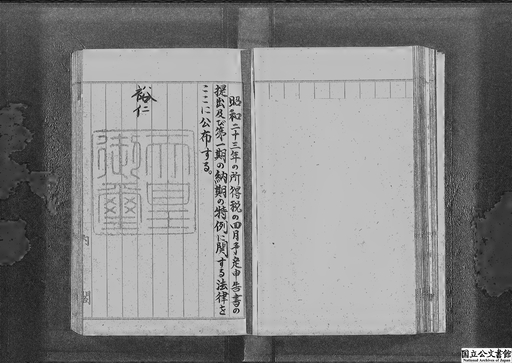 昭和二十三年の所得税の四月予定申告書の
提出及び第一期の納期の特例に関する法律を
ここに公布する。
裕仁
天皇
御璽
内閣
国立公文書館
National Archives of Japan